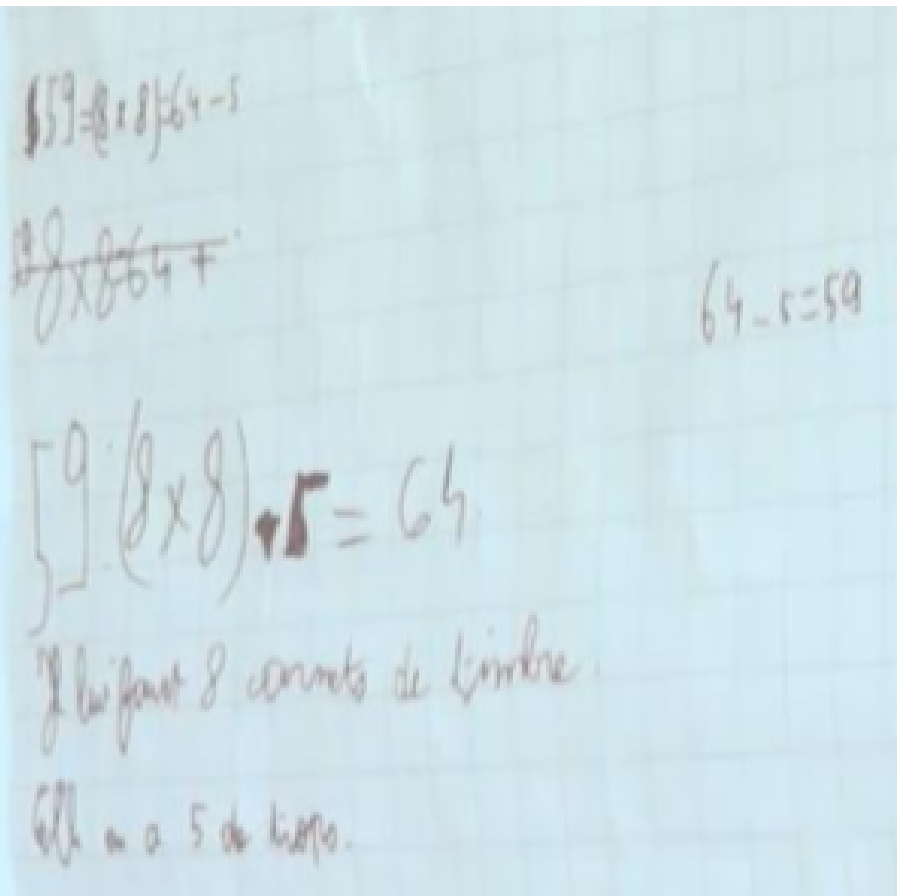 59=(8×8)=64-5
8×8=64+
64-5=59
59:(8×8)+5=64
Il lui faut 8 carnets de timbre.
Elle en a 5 de trop.